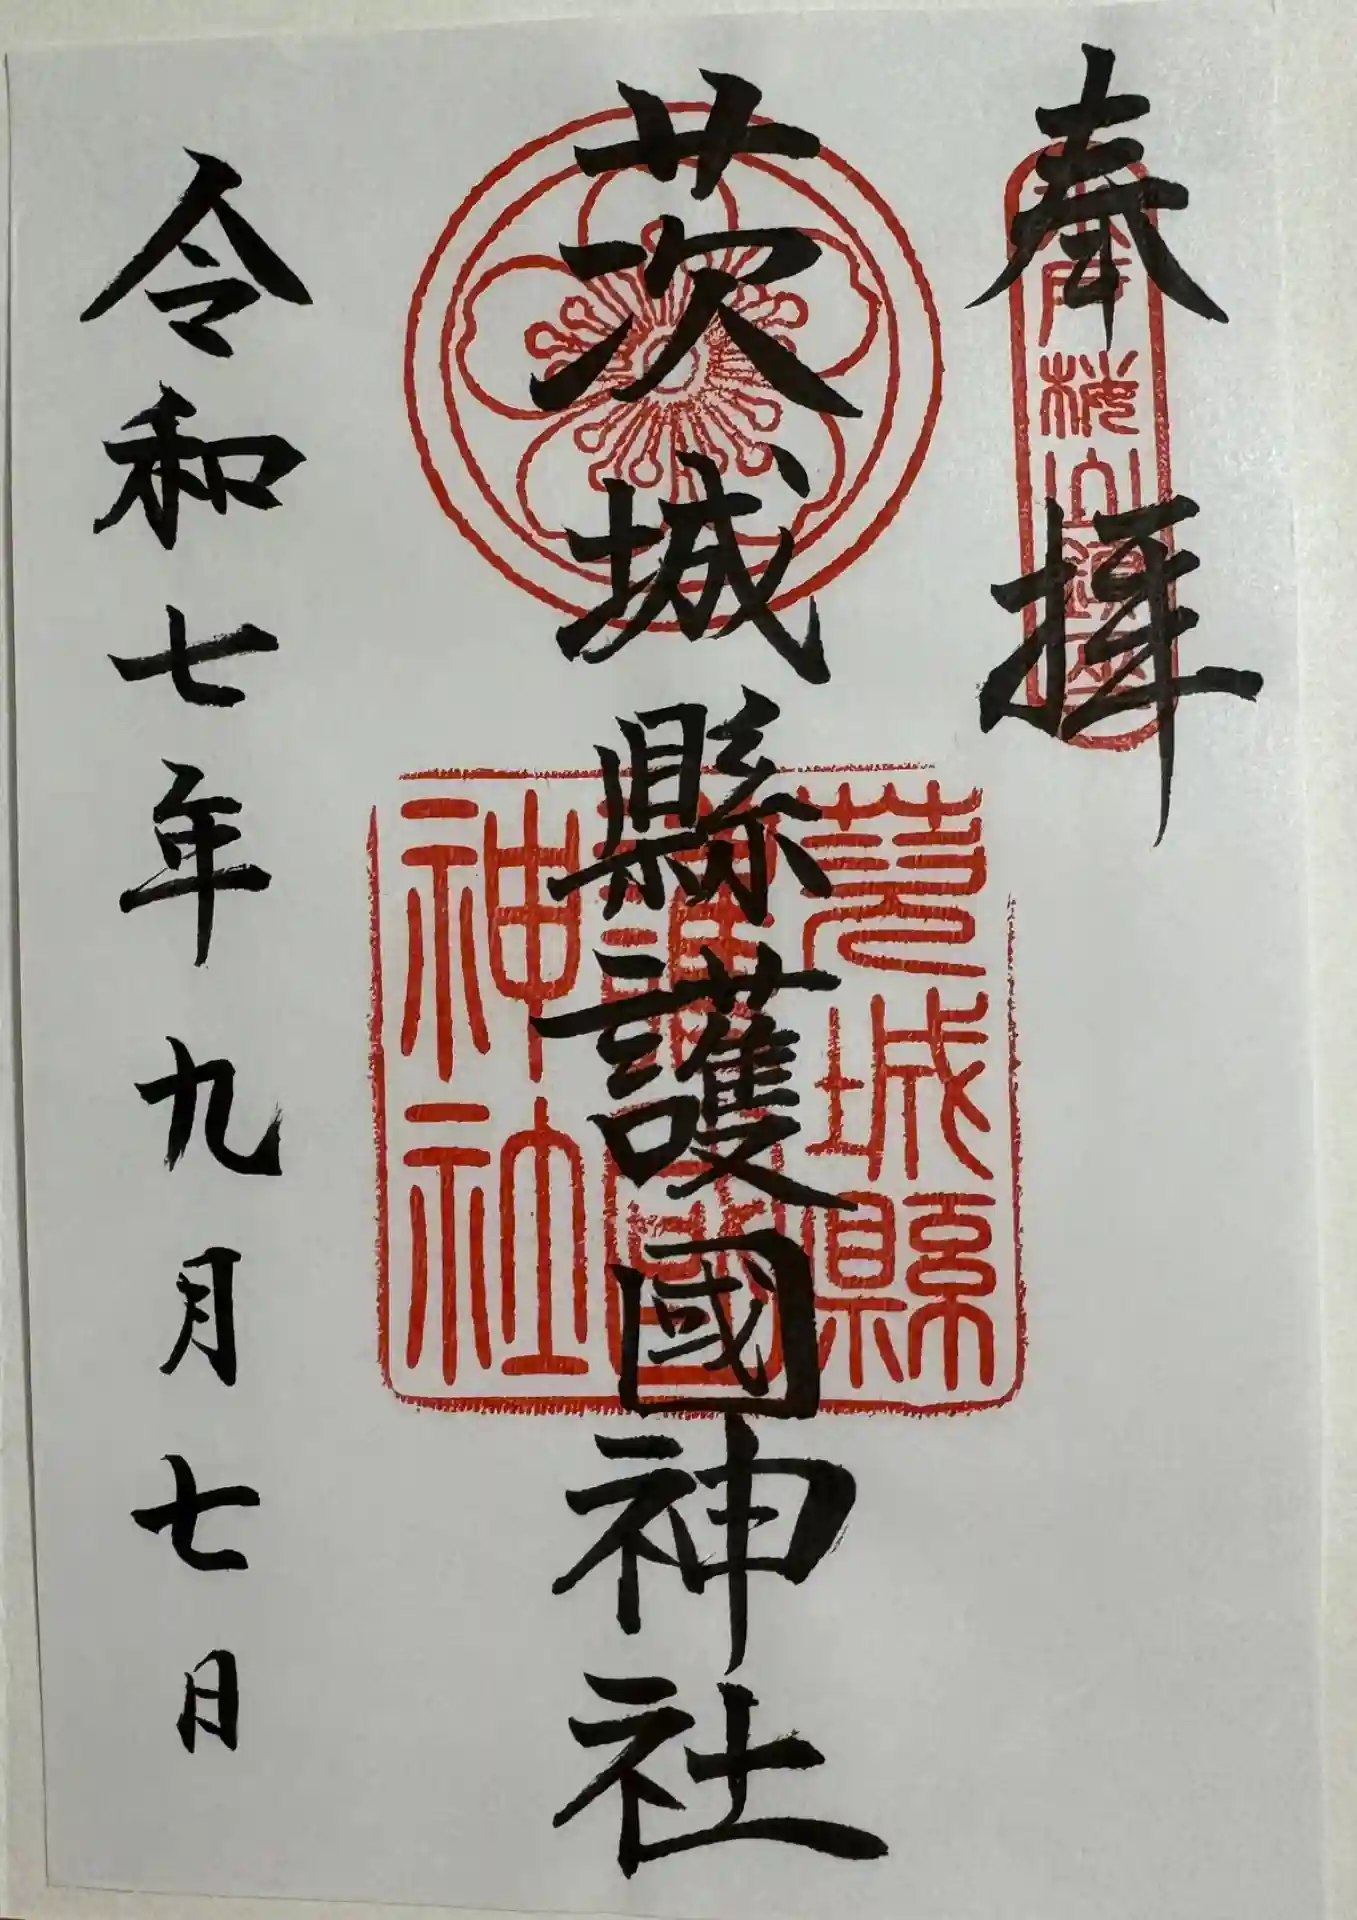 奉拝
水戸桜山鎮座
茨城縣護國神社
茨城縣
護國
神社
令和七年九月七日